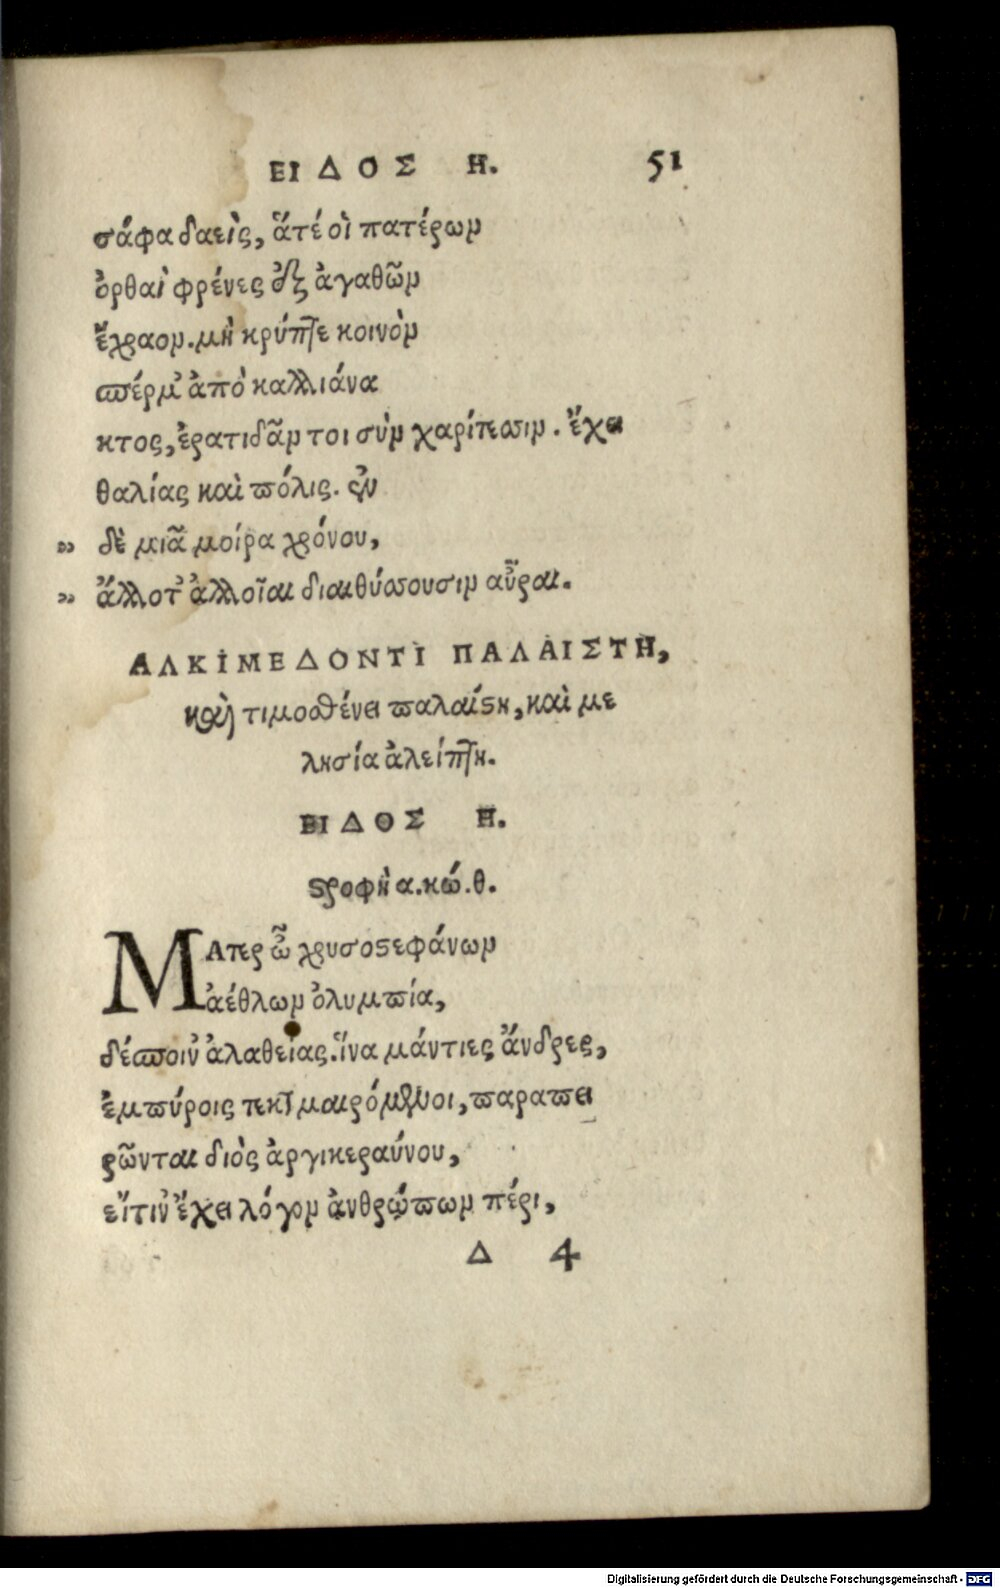 ΕΙΔΟΣ Η. 51
σάφα δαεὶς, ἅτέ οἱ πατέρων
ὀρθαὶ φρένες ἐξ ἀγαθῶν
ἔχραον. μὴ κρύπτε κοινὸν
σπέρμ' ἀπὸ καλλιάνα
κτος, ἐρατιδᾶν τοι σὺν χαρίτεσσιν. ἔχει
θαλίας καὶ πόλις. ἐν
" δὲ μιᾶ μοίρα χρόνου,
" ἄλλοτ' ἀλλοῖαι διαιθύσσουσιν αὖραι.
ΑΛΚΙΜΕΔΟΝΤΙ ΠΑΛΑΙΣΤΗ,
καὶ τιμοσθένει παλαίστη, καὶ με
λησία ἀλείπτη.
ΕΙΔΟΣ Η.
στροφὴ α. κώ. θ.
ΜΑτερ ὦ χρυσοστεφάνων
ἀέθλων ὀλυμπία,
δέσποιν' ἀλαθείας. ἵνα μάντιες ἄνδρες,
ἐμπύροις τεκμαιρόμενοι, παραπει
ρῶνται διὸς ἀργικεραύνου,
εἴτιν' ἔχει λόγον ἀνθρώπων πέρι,
Δ 4
Digitalisierung gefördert durch die Deutsche Forschungsgemeinschaft - DFG